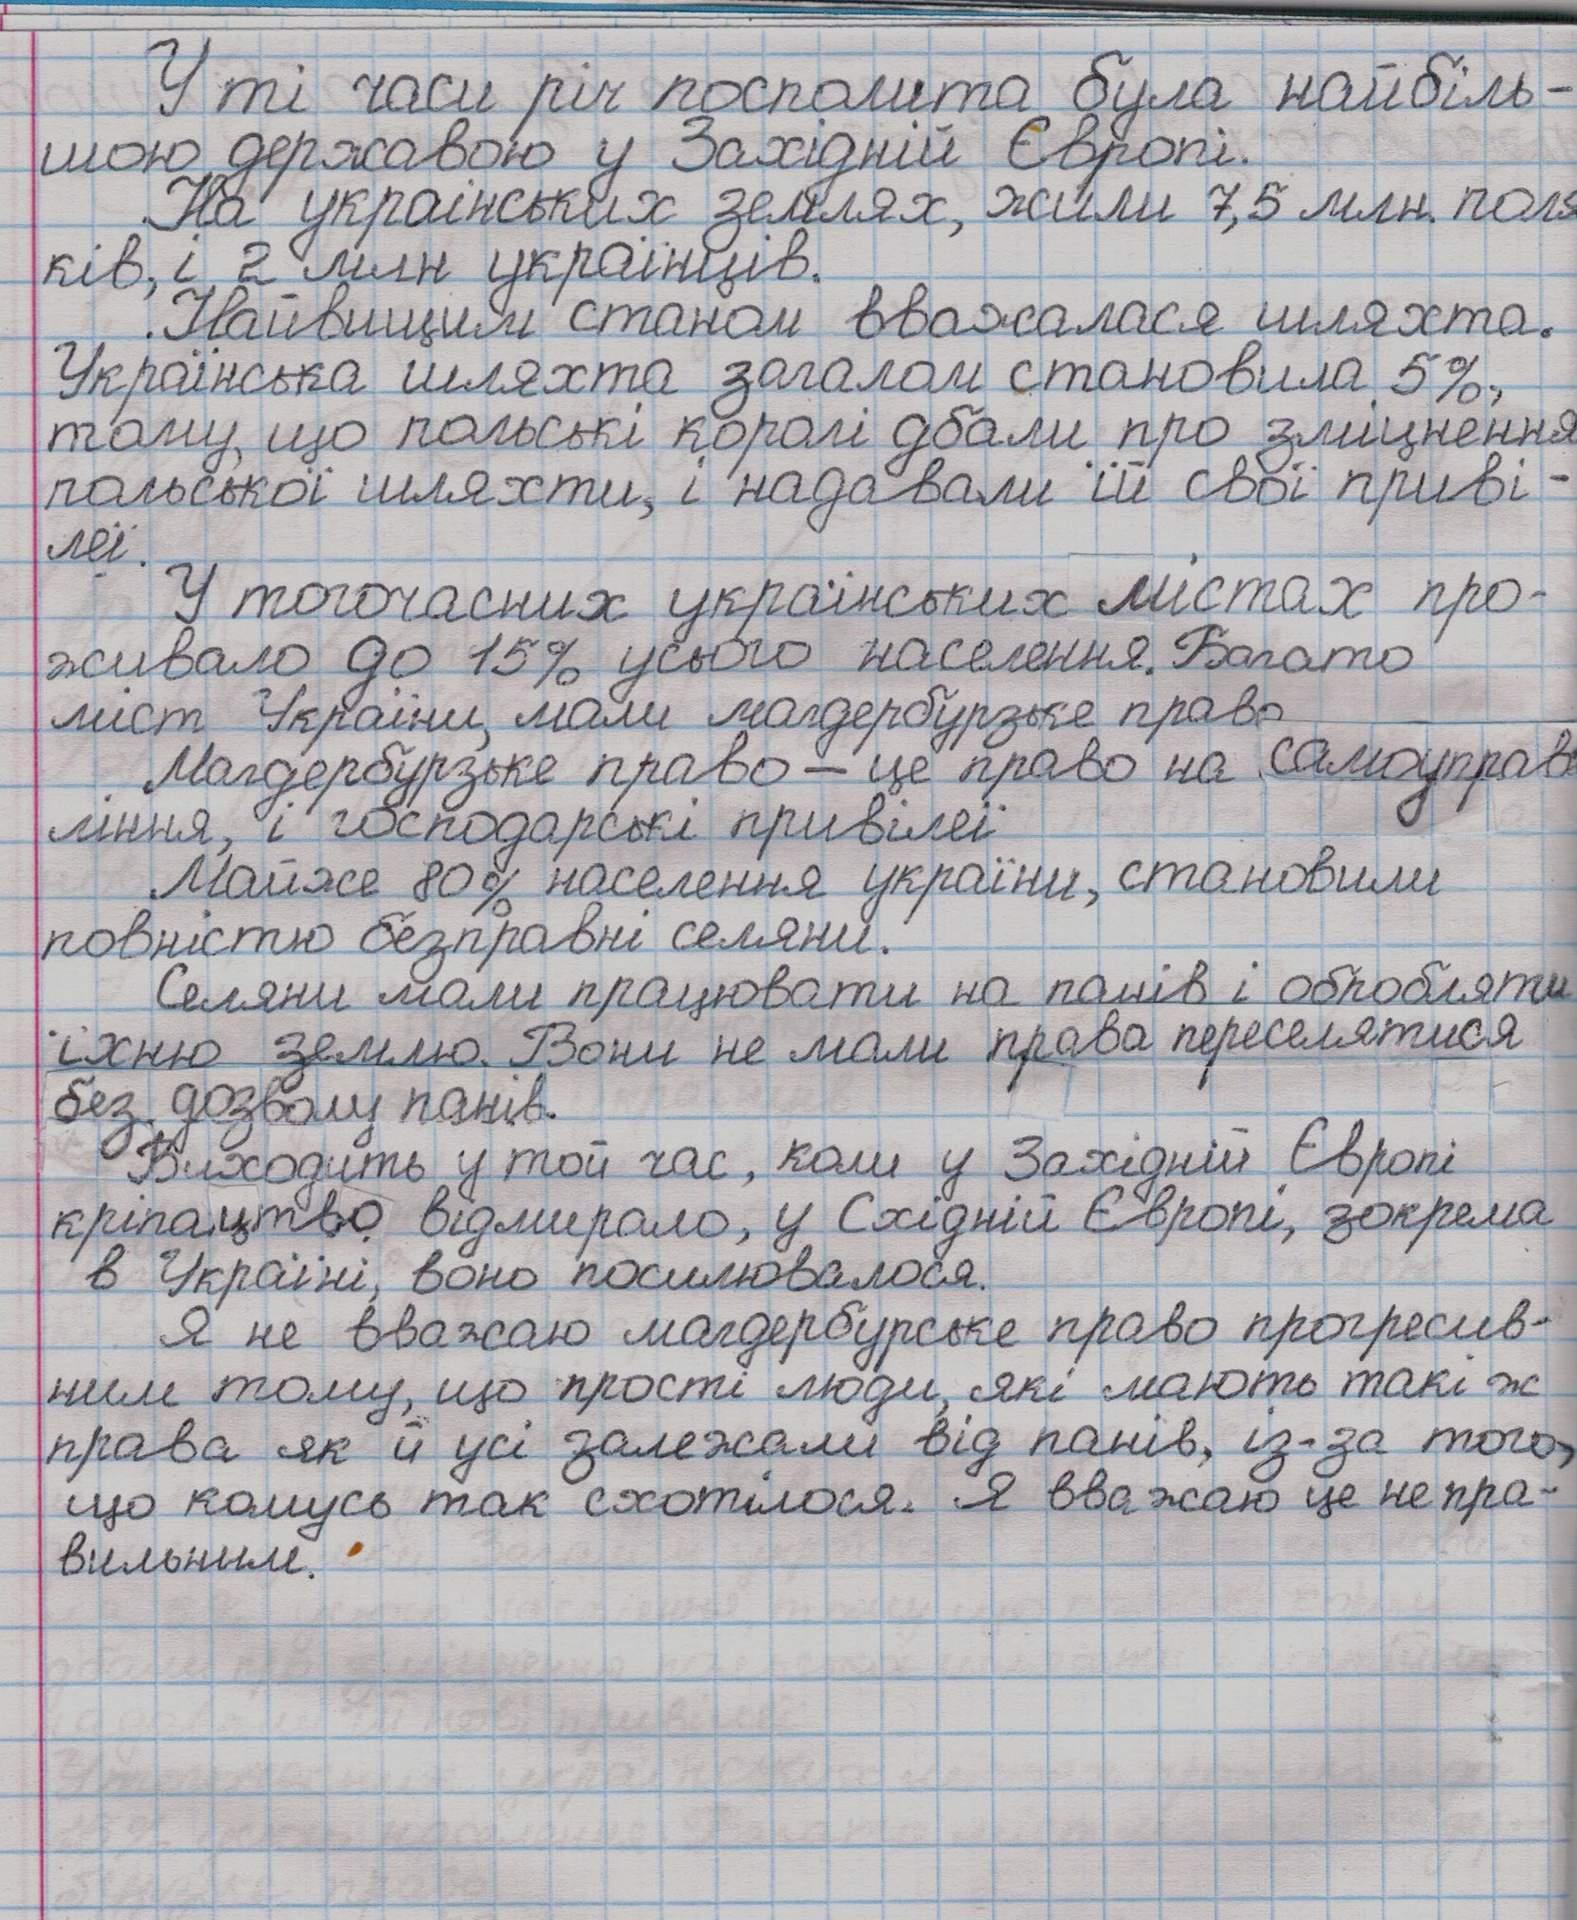 У ті часи річ посполита була найбіль-
шою державою у Західній Європі.
На українських землях, жили 7,5 млн. поля
ків, і 2 млн українців.
Найвищим станом вважалася шляхта.
Українська шляхта загалом становила 5%,
тому, що польські королі дбали про зміцнення
польської шляхти, і надавали їй свої приві-
леї.
У тогочасних українських містах про-
живало до 15% усього населення. Багато
міст України, мали магдербурзьке право
Магдербурзьке право – це право на самоуправ
ління, і господарські привілеї
Майже 80% населення україни, становили
повністю безправні селяни.
Селяни мали працювати на панів і обробляти
їхню землю. Вони не мали права переселятися
без дозволу панів.
Виходить у той час, коли у Західній Європі
кріпацтво відмирало, у Східній Європі, зокрема
в Україні, воно посилювалося.
Я не вважаю магдербурське право прогресив-
ним тому, що прості люди, які мають такі ж
права як й усі залежали від панів, із-за того,
що комусь так схотілося. Я вважаю це непра-
вильним.